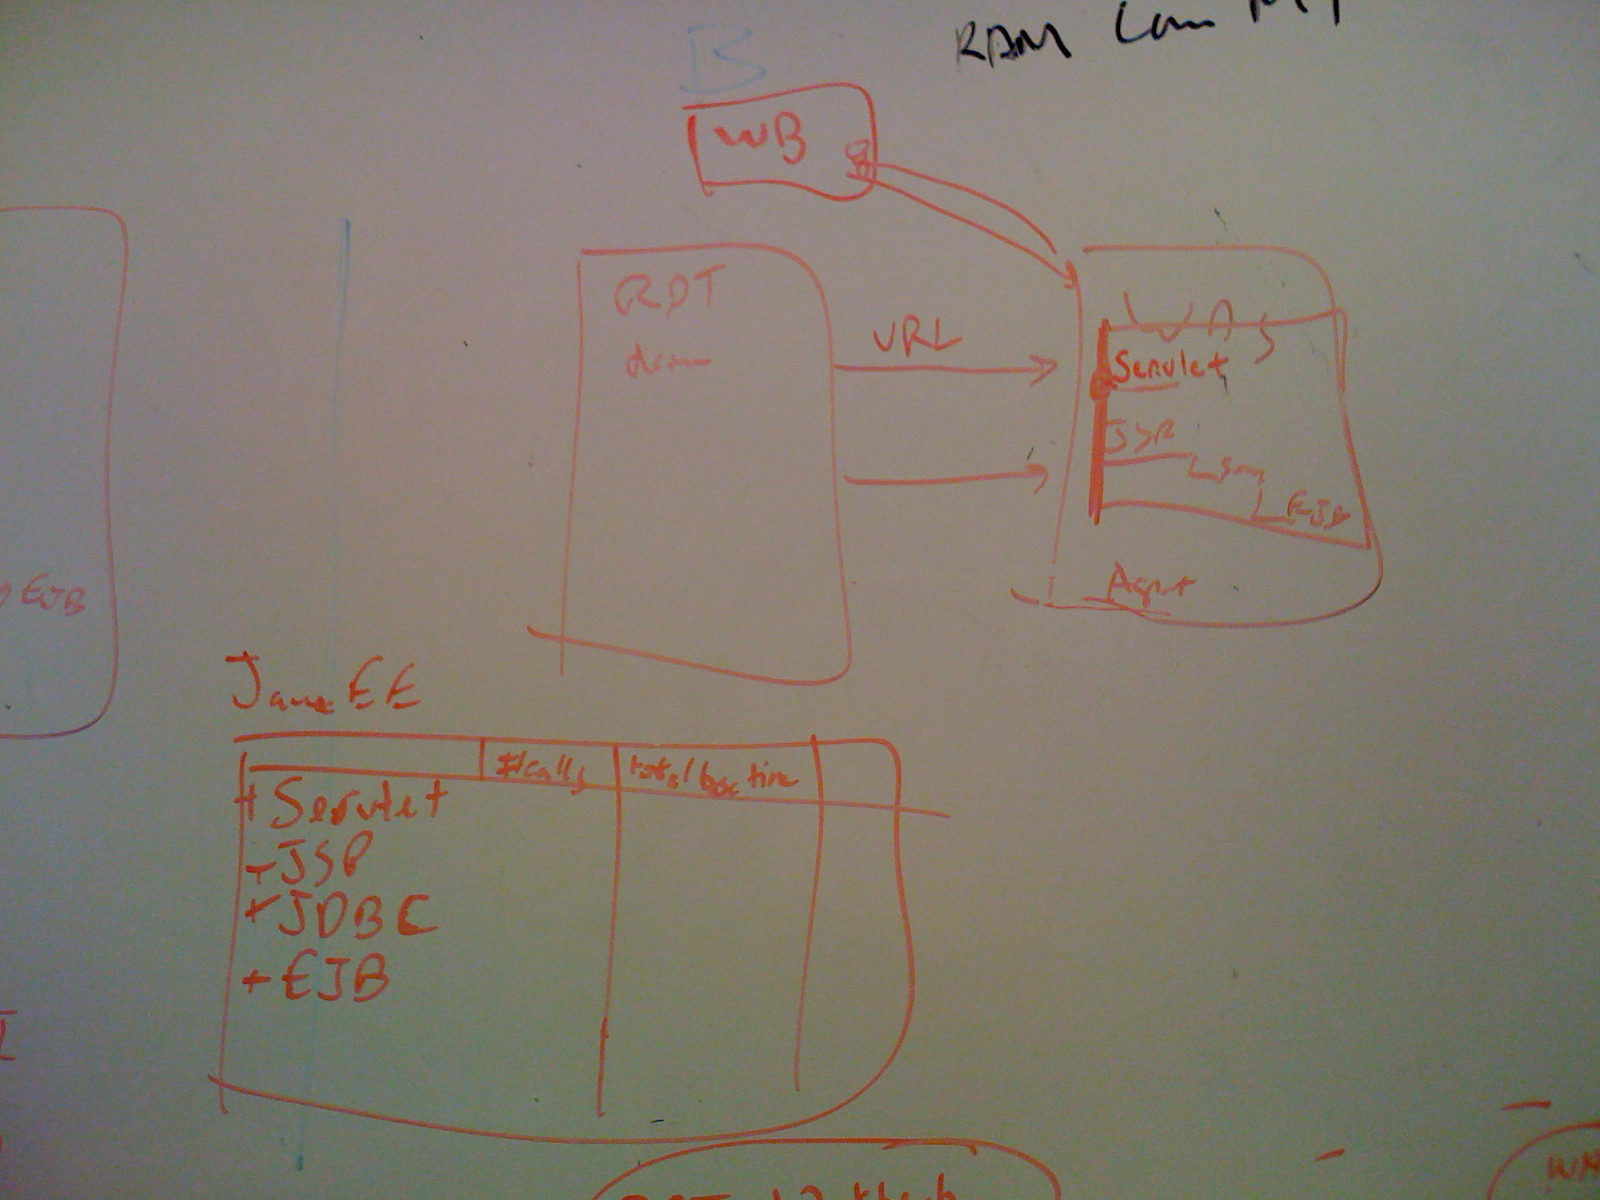 RAM
B
WB
RPT
URL
WAS
Servlet
JSP
EJB
Agent
EJB
JavaEE
#calls
total base time
+ Servlet
+ JSP
+ JDBC
+ EJB